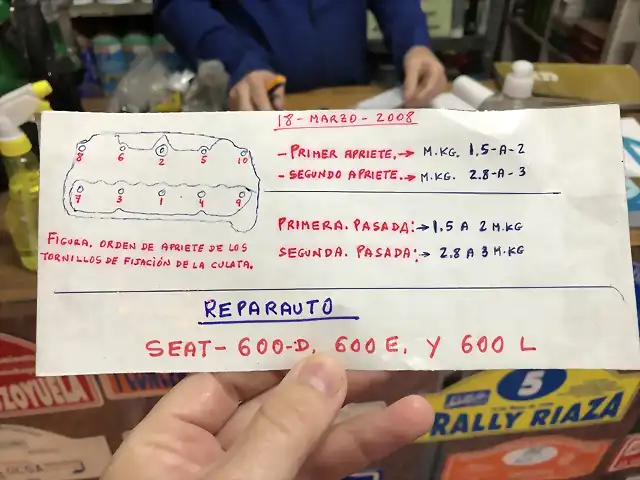 18-MARZO-2008
8 6 2 5 10
7 3 1 4 9
- PRIMER APRIETE.→ M.KG. 1,5-A-2
- SEGUNDO APRIETE.→ M.KG. 2.8-A-3
PRIMERA. PASADA:→1.5 A 2 M.KG
SEGUNDA. PASADA:→ 2.8 A 3 M.KG
FIGURA. ORDEN DE APRIETE DE LOS
TORNILLOS DE FIJACIÓN DE LA CULATA.
REPARAUTO
SEAT-600-D, 600 E, Y 600 L
5
RALLY RIAZA